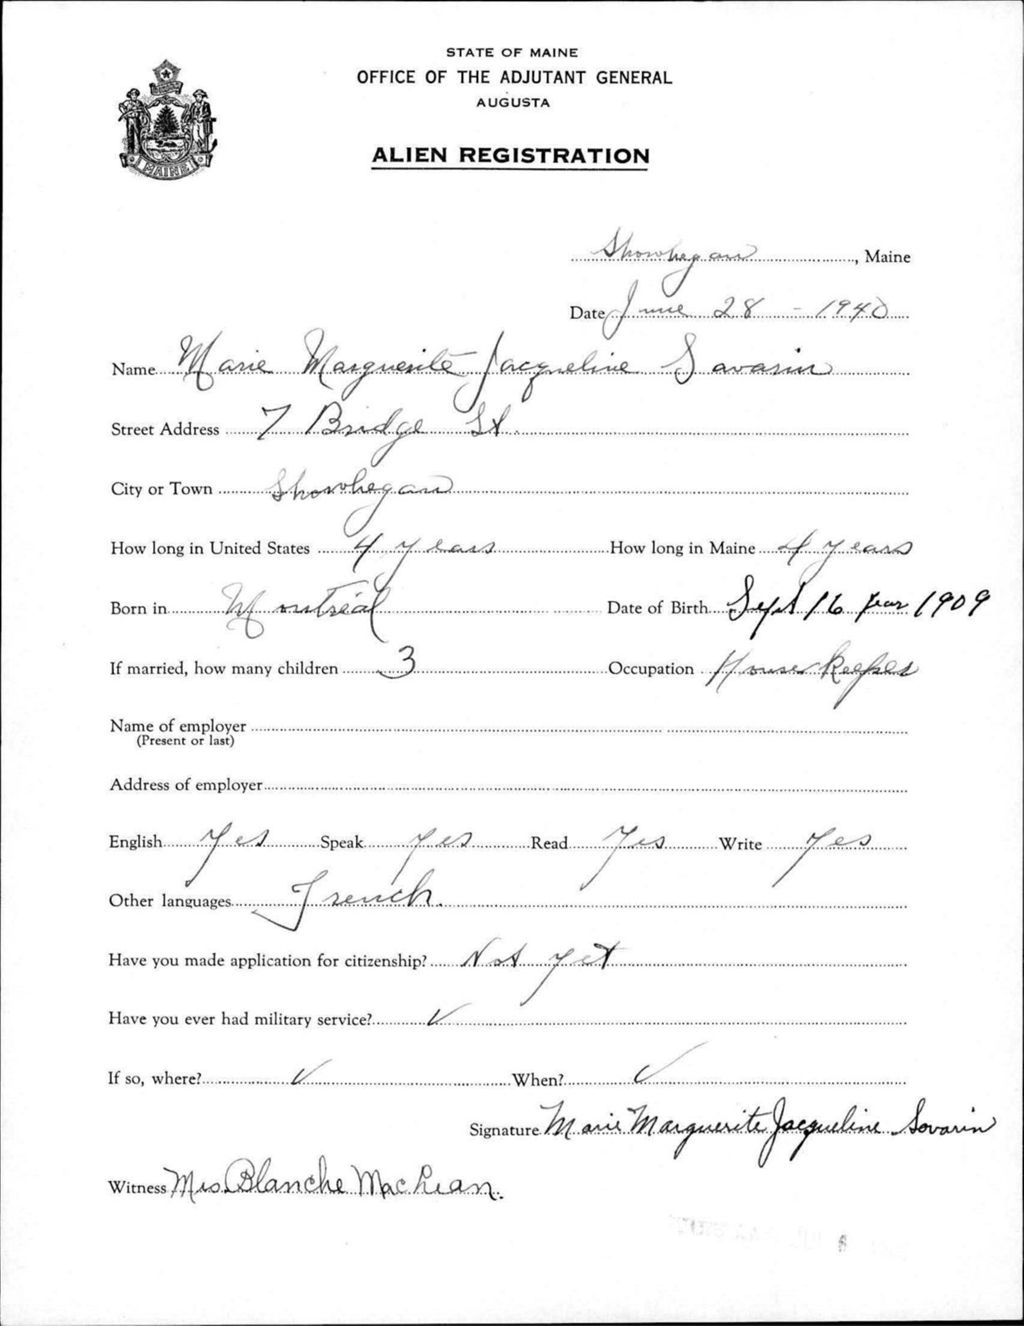 STATE OF MAINE
OFFICE OF THE ADJUTANT GENERAL
AUGUSTA
ALIEN REGISTRATION
MAINE
Skowhegan, Maine
Date June 28 - 1940
Name Marie Marguerite Jacqueline Savarin
Street Address 7 Bridge St.
City or Town Skowhegan
How long in United States 4 years How long in Maine 4 years
Born in Montréal Date of Birth Sept 16 year 1909
If married, how many children 3 Occupation House Keeper
Name of employer
(Present or last)
Address of employer
English Yes Speak Yes Read Yes Write Yes
Other languages French.
Have you made application for citizenship? Not yet
Have you ever had military service? ✓
If so, where? ✓ When? ✓
Signature Marie Marguerite Jacqueline Sovarin
Witness Mrs. Blanche MacLean.